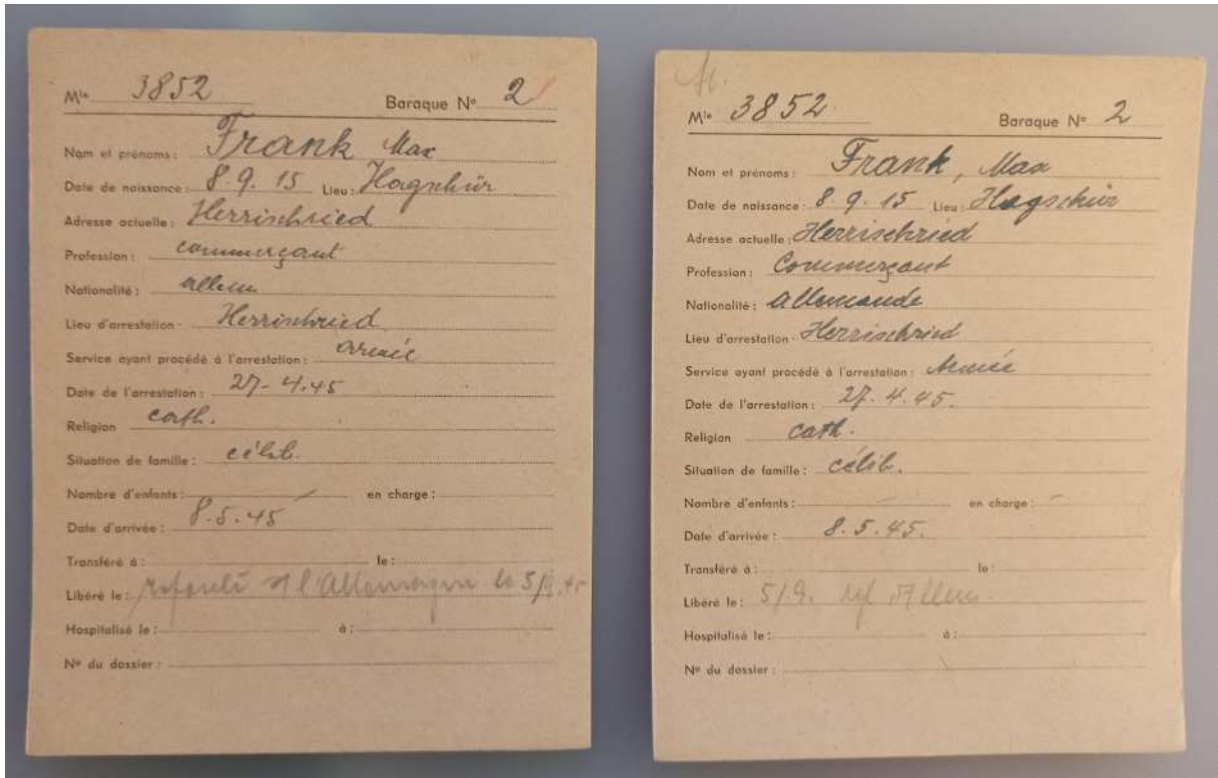 Mle 3852 Baraque No 2
Nom et prénoms: Frank Max
Date de naissance: 8.9.15 Lieu: Hagschür
Adresse actuelle: Herrischried
Profession: commerçant
Nationalité: allem
Lieu d'arrestation: Herrischried
Service ayant procédé à l'arrestation: armée
Date de l'arrestation: 27-4.45
Religion cath.
Situation de famille: célib.
Nombre d'enfants: — en charge:
Date d'arrivée: 8.5.45
Transféré à: le:
Libéré le: refoulé l'Allemagne le 5/9.45
Hospitalisé le: à:
No du dossier:
Mle 3852 Baraque No 2
Nom et prénoms: Frank, Max
Date de naissance: 8.9.15 Lieu: Hagschür
Adresse actuelle: Herrischried
Profession: Commerçant
Nationalité: Allemande
Lieu d'arrestation: Herrischried
Service ayant procédé à l'arrestation: Armée
Date de l'arrestation: 27.4.45.
Religion cath.
Situation de famille: célib.
Nombre d'enfants: — en charge: —
Date d'arrivée: 8.5.45.
Transféré à: le:
Libéré le: 5/9. ref. Allem.
Hospitalisé le: à:
No du dossier: